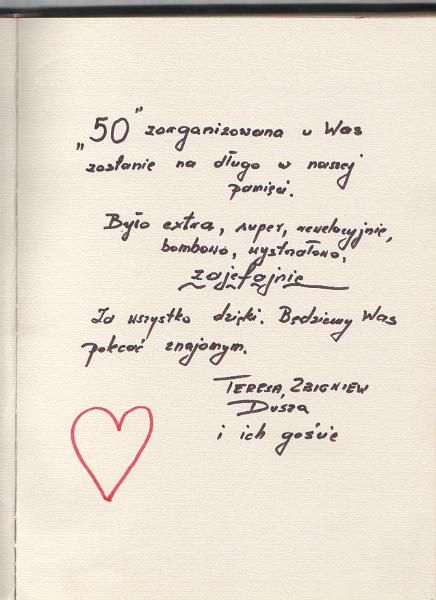 „50” zorganizowana u Was
zostanie na długo w naszej
pamięci.
Było extra, super, rewelacyjnie,
bombowo, wystrzałowo,
zajefajnie
Za wszystko dzięki. Będziemy Was
polecać znajomym.
TERESA, ZBIGNIEW
Dusza
i ich goście